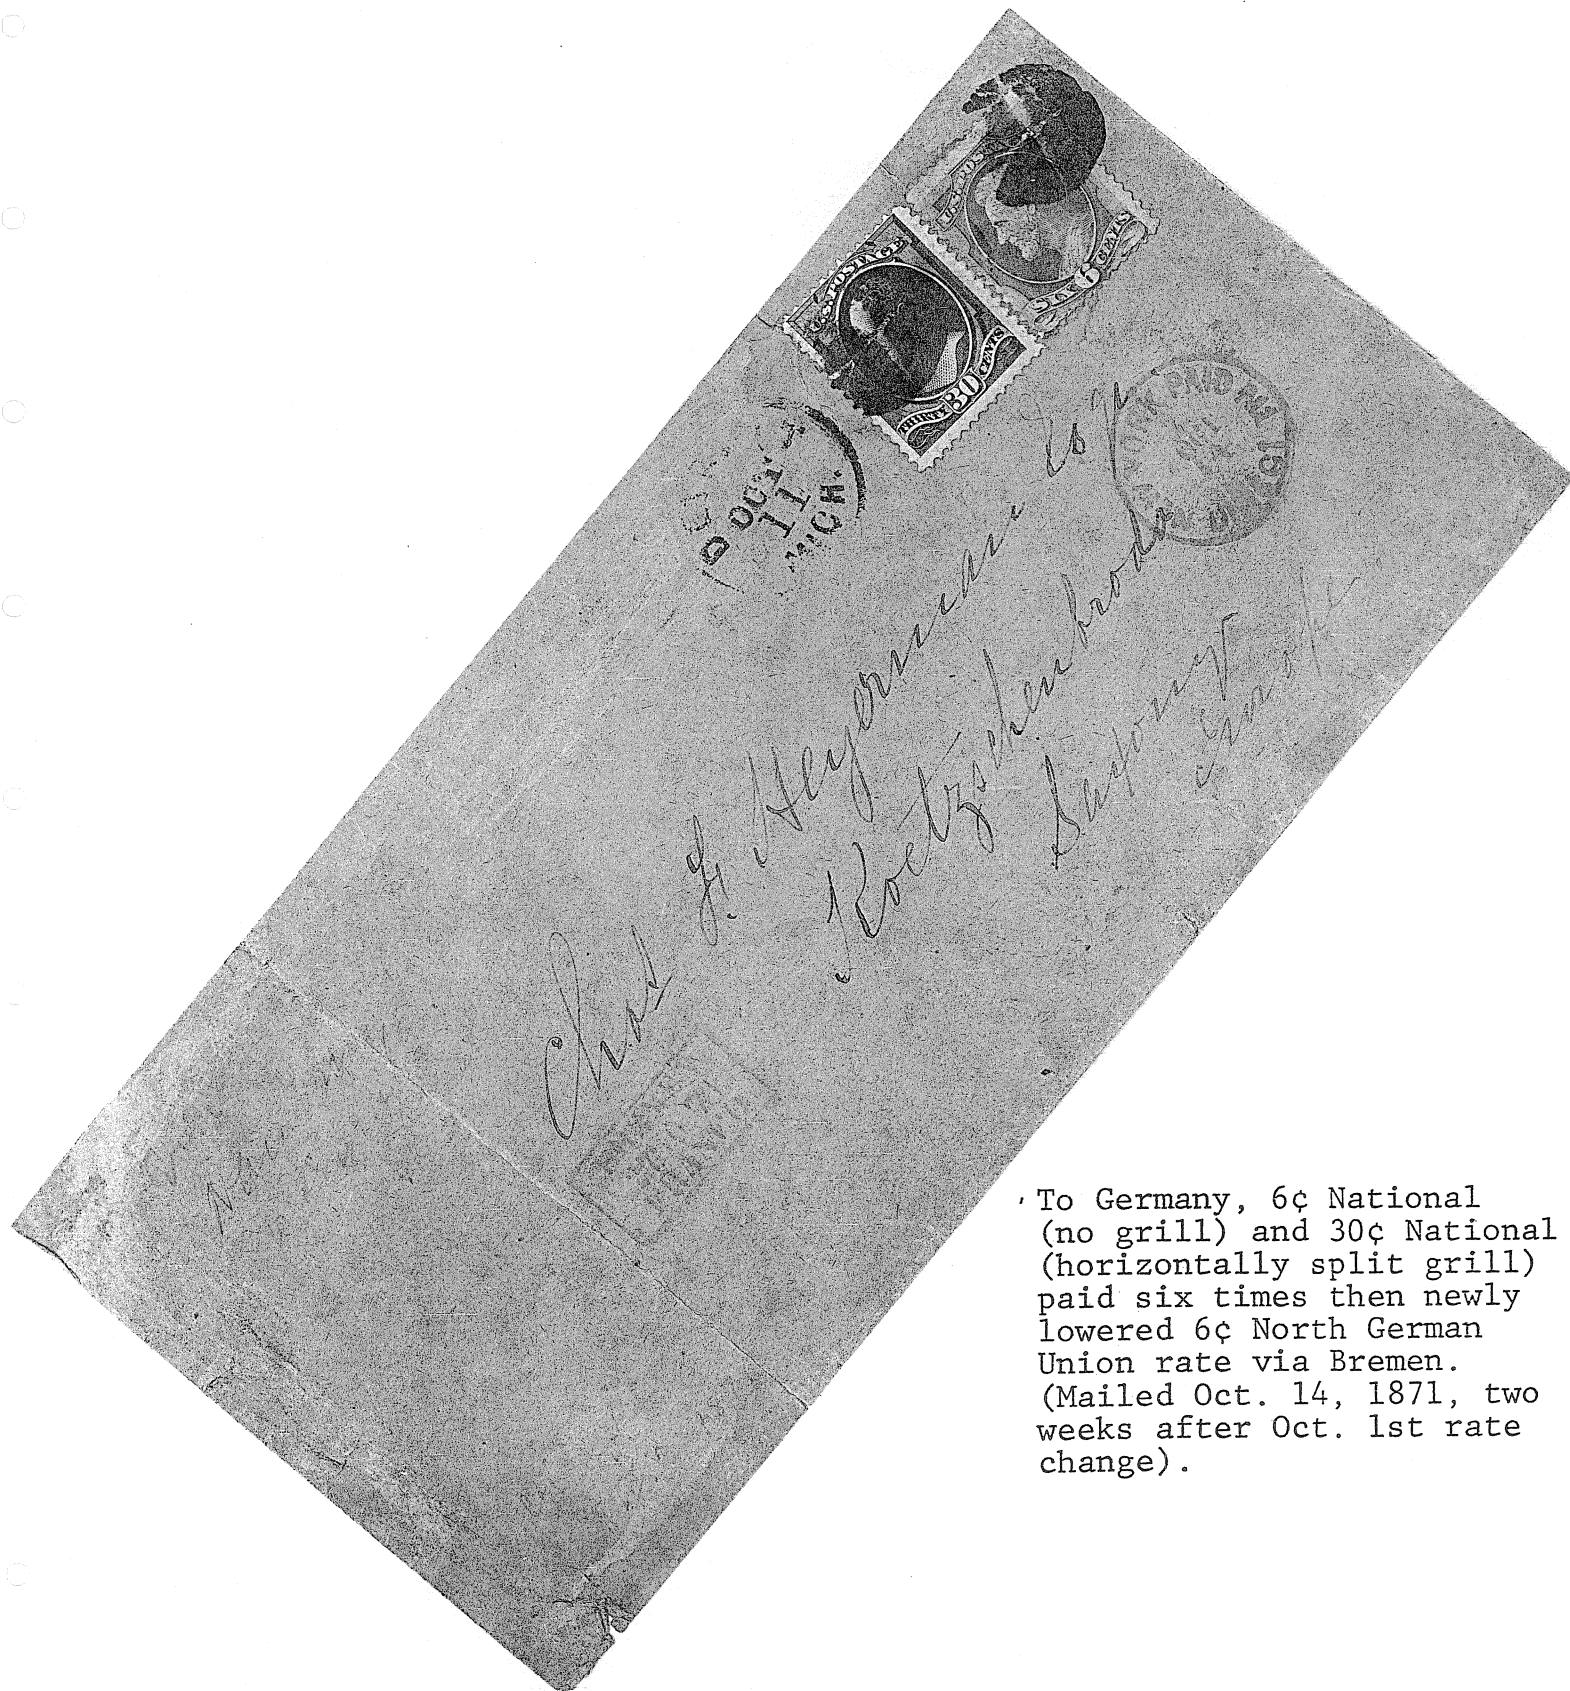 U.S. POS
SIX 6 CENTS
U.S. POSTAGE
THIRTY 30 CENTS
OCT
11
MICH.
PAID ALL
15
Chas F. Heyerman Esqr
Koetzschenbroda
Saxony
To Germany, 6¢ National
(no grill) and 30¢ National
(horizontally split grill)
paid six times then newly
lowered 6¢ North German
Union rate via Bremen.
(Mailed Oct. 14, 1871, two
weeks after Oct. 1st rate
change).